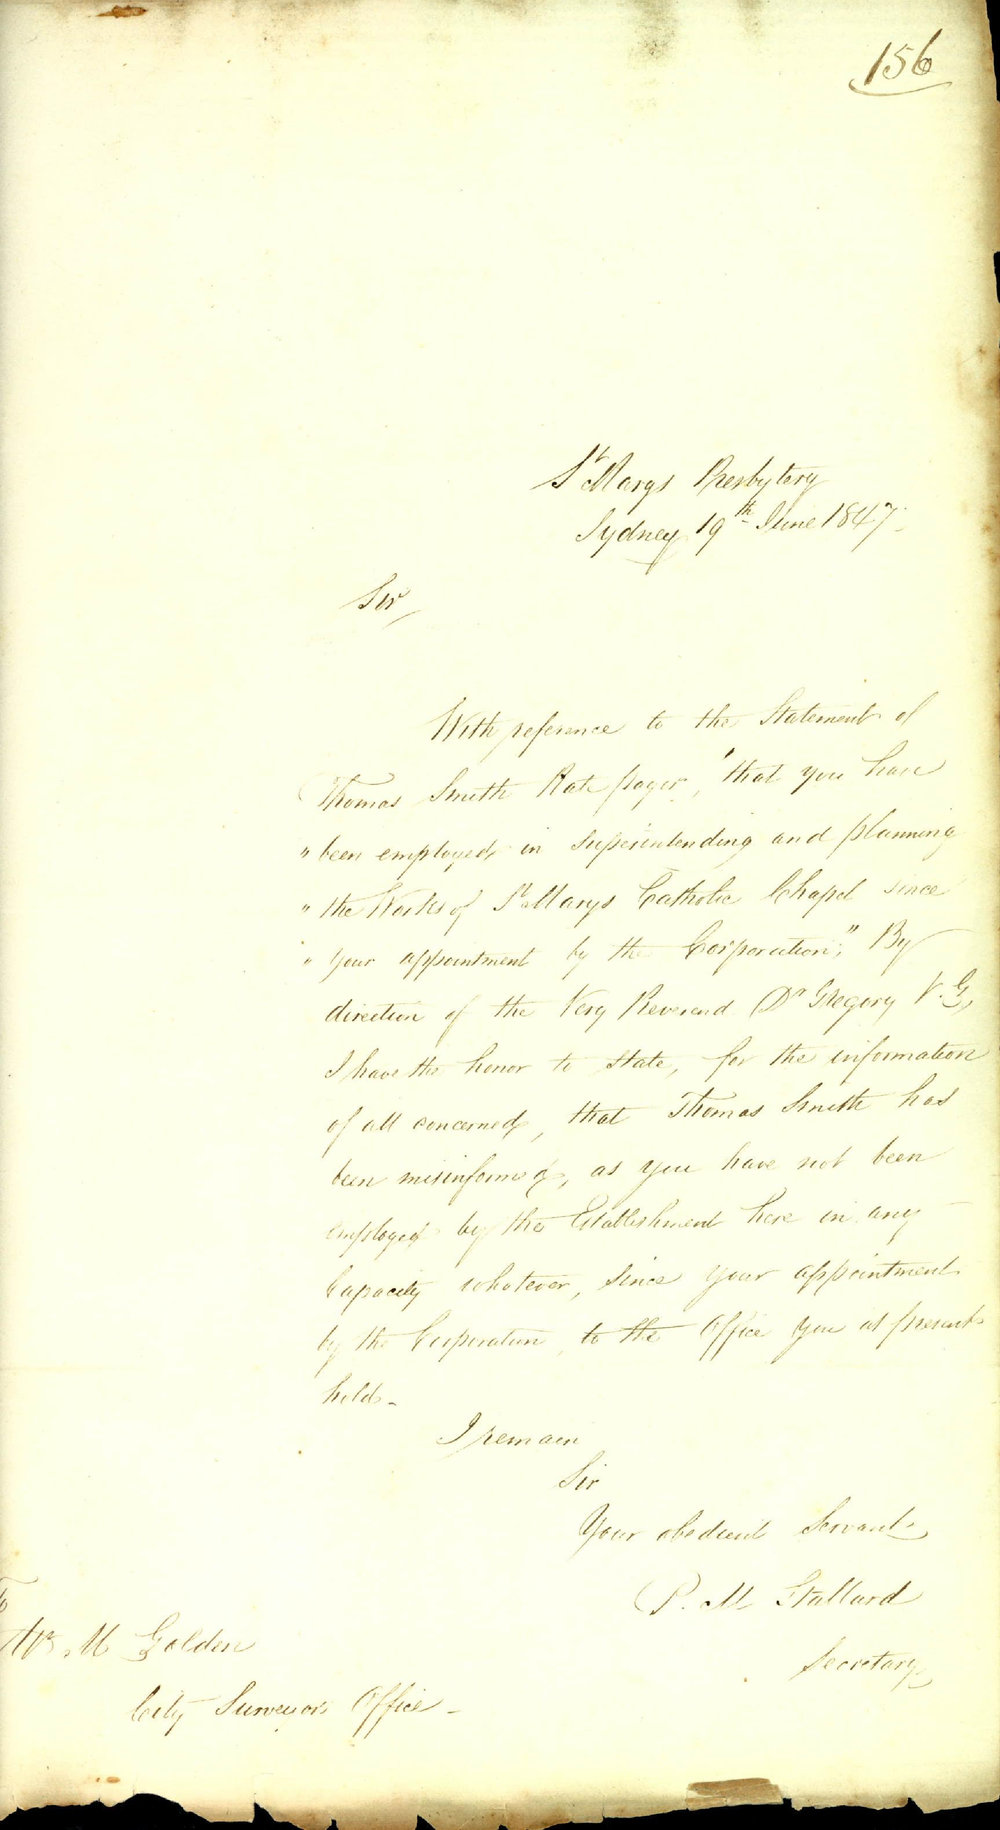 156
St Marys Presbytery
Sydney 19th June 1847.
Sir,
With reference to the Statement of
Thomas Smith Rate payer, "that you have
" been employed in superintending and planning
" the Works of St Marys Catholic Chapel since
" your appointment by the Corporation;" By
direction of the Very Reverend Dr Gregory V. G,
I have the honor to state, for the information
of all concerned, that Thomas Smith has
been misinformed, as you have not been
employed by the Establishment here in any
Capacity whatever, since your appointment
by the Corporation, to the Office you at present
hold -
I remain
Sir
Your obedient Servant
P. M Stallard
Secretary
To
Mr. M Golden
City Surveyors Office -